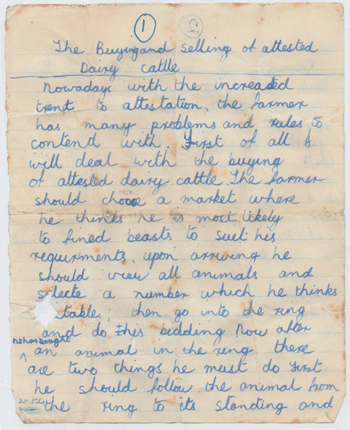 1
The Buying and selling of attested
Dairy cattle
Nowadays with the increased
trent to attestation, the farmer
has many problems and rules to
contend with. First of all I
will deal with the buying
of attested dairy cattle. The farmer
should choose a market where
he thinks he is most likely
to fined beasts to suit his
requirments, upon arriving he
should view all animals and
selecte a number which he thinks
table, then go into the ring
and do this bidding Now after
he has bought
an animal in the ring there
are two things he must do first
he should follow the animal from
the ring to its standing and